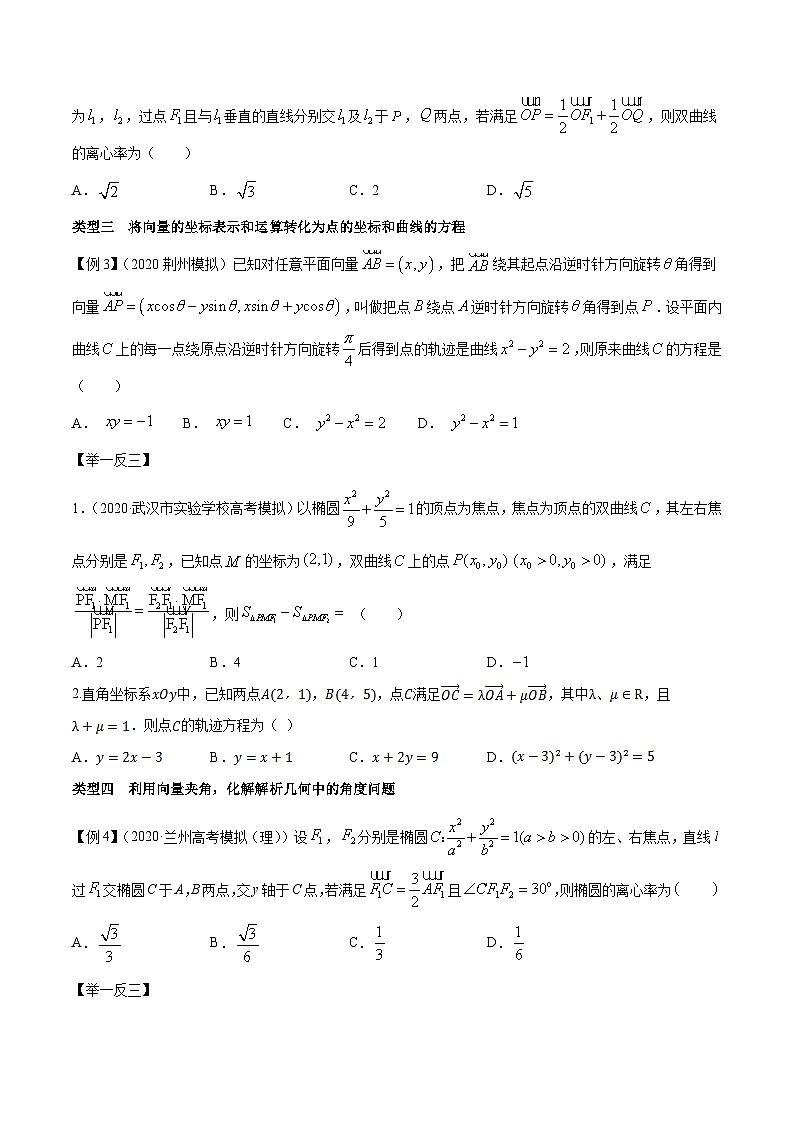 为 l₁，l₂，过点 F₁且与 l₁垂直的直线分别交 l₁及 l₂于 P，Q两点，若满足 $\overrightarrow{OP}=\frac{1}{2}\overrightarrow{OF_1}+\frac{1}{2}\overrightarrow{OQ}$，则双曲线
的离心率为（　　）
A．√2　B．√3　C．2　D．√5
类型三　将向量的坐标表示和运算转化为点的坐标和曲线的方程
【例 3】（2020 荆州模拟）已知对任意平面向量 $\overrightarrow{AB}=(x,y)$，把 $\overrightarrow{AB}$ 绕其起点沿逆时针方向旋转θ角得到
向量 $\overrightarrow{AP}=(x\cos\theta-y\sin\theta,x\sin\theta+y\cos\theta)$，叫做把点 B 绕点 A 逆时针方向旋转θ角得到点 P．设平面内
曲线 C 上的每一点绕原点沿逆时针方向旋转 $\frac{\pi}{4}$ 后得到点的轨迹是曲线 $x^2-y^2=2$，则原来曲线 C 的方程是
（　　）
A． xy=−1　B． xy=1　C． $y^2-x^2=2$　D． $y^2-x^2=1$
【举一反三】
1.（2020·武汉市实验学校高考模拟）以椭圆 $\frac{x^2}{9}+\frac{y^2}{5}=1$ 的顶点为焦点，焦点为顶点的双曲线 C，其左右焦
点分别是 F₁,F₂，已知点 M 的坐标为 (2,1)，双曲线 C 上的点 P(x₀,y₀) (x₀>0,y₀>0)，满足
$\frac{\overrightarrow{PF_1}\cdot\overrightarrow{MF_1}}{|\overrightarrow{PF_1}|}=\frac{\overrightarrow{F_2F_1}\cdot\overrightarrow{MF_1}}{|\overrightarrow{F_2F_1}|}$，则 $S_{\triangle PMF_1}-S_{\triangle PMF_2}=$ （　　）
A．2　B．4　C．1　D．−1
2.直角坐标系xOy中，已知两点A(2，1)，B(4，5)，点C满足 $\overrightarrow{OC}=\lambda\overrightarrow{OA}+\mu\overrightarrow{OB}$，其中λ、μ∈R，且
λ+μ=1．则点C的轨迹方程为（ ）
A．y=2x−3　B．y=x+1　C．x+2y=9　D．(x−3)²+(y−3)²=5
类型四　利用向量夹角，化解解析几何中的角度问题
【例 4】（2020·兰州高考模拟（理））设 F₁，F₂分别是椭圆 C: $\frac{x^2}{a^2}+\frac{y^2}{b^2}=1(a>b>0)$ 的左、右焦点，直线 l
过 F₁交椭圆 C 于 A,B两点,交 y 轴于 C 点,若满足 $\overrightarrow{F_1C}=\frac{3}{2}\overrightarrow{AF_1}$ 且 ∠CF₁F₂=30°,则椭圆的离心率为（　　）
A． $\frac{\sqrt{3}}{3}$　B． $\frac{\sqrt{3}}{6}$　C． $\frac{1}{3}$　D． $\frac{1}{6}$
【举一反三】